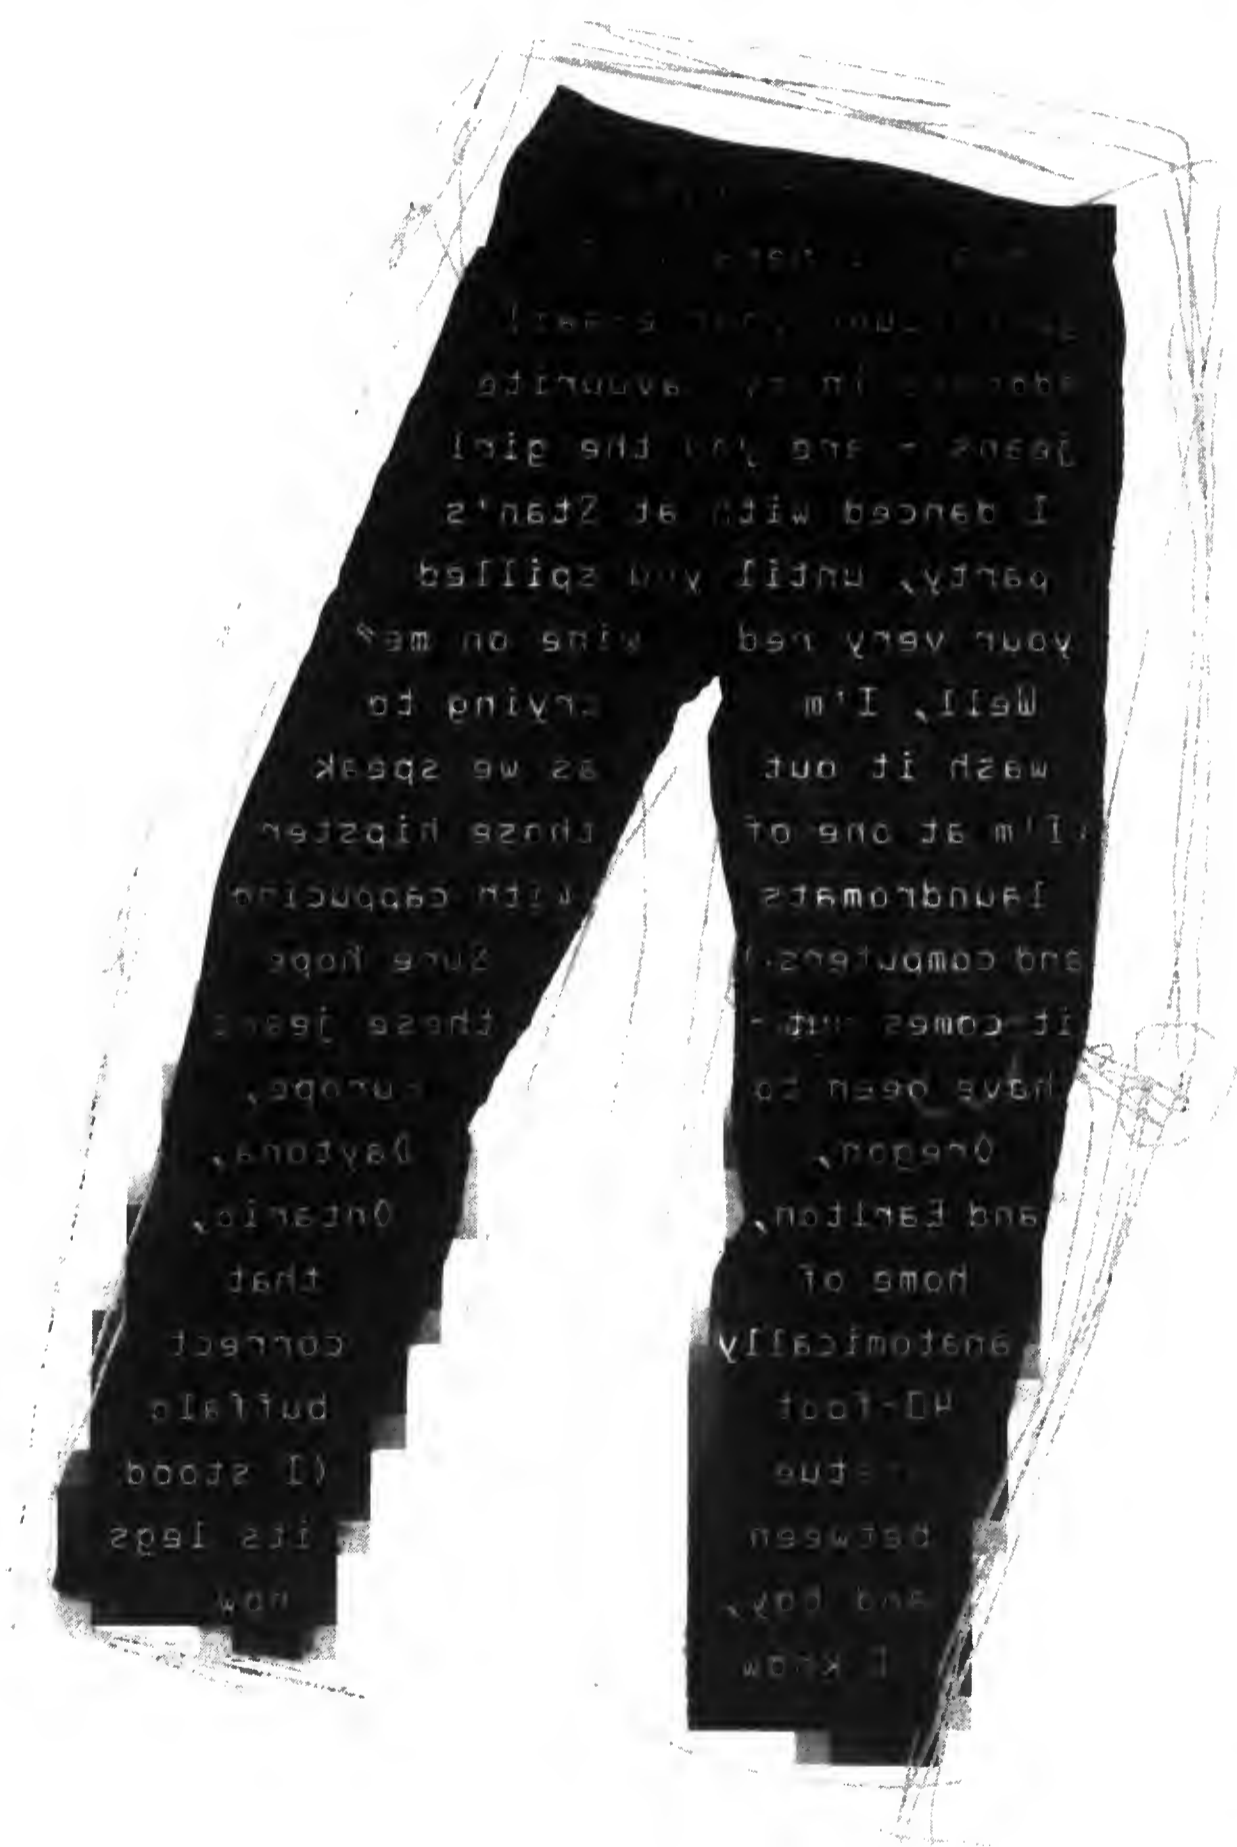 found your e-mail
address in my favourite
jeans - are you the girl
I danced with at Stan's
party, until you spilled
your very red wine on me?
Well, I'm trying to
wash it out as we speak
(I'm at one of those hipster
laundromats with cappucino
and computers.) Sure hope
it comes out - these jeans
have been to Europe,
Oregon, Daytona,
and Earlton, Ontario,
home of that
anatomically correct
40-foot buffalo
statue (I stood
between its legs
and boy, now
I know